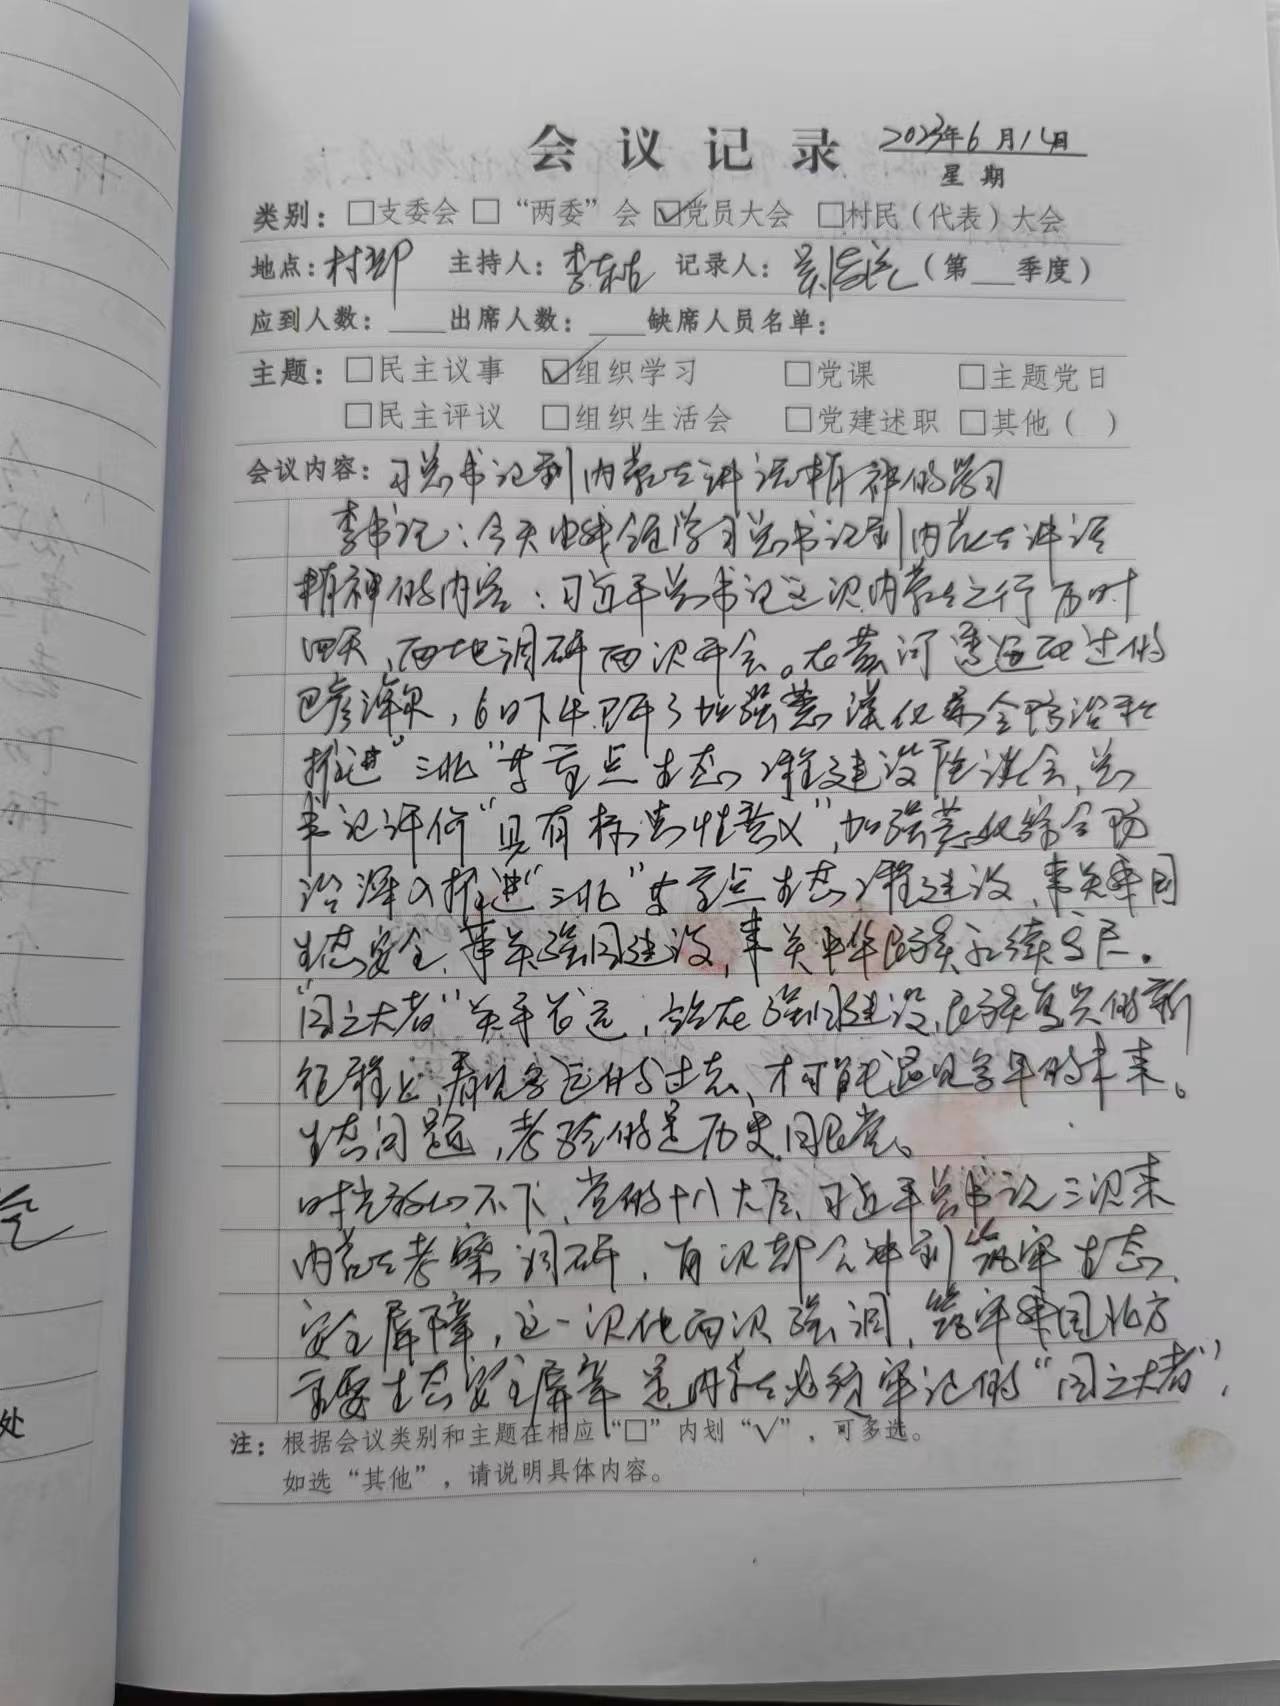 会议记录 2023年6月14日
星期
类别：□支委会 □“两委”会 ☑党员大会 □村民（代表）大会
地点：村部 主持人：李 记录人： （第___季度）
应到人数：____出席人数：____缺席人员名单：
主题：□民主议事 ☑组织学习 □党课 □主题党日
□民主评议 □组织生活会 □党建述职 □其他（ ）
会议内容：习总书记到内蒙古讲话精神的学习
李书记：今天由我会学习总书记到内蒙古讲话
精神的内容：习近平总书记这次内蒙古之行历时
四天、两地调研两次开会。在黄河而过的
巴彦淖尔，6日下午召开了加强荒漠化综合防治和
推进“三北”等重点生态工程建设座谈会，总
书记评价“具有标志性意义”，加强荒化综合防
治深入推进“三北”等重点生态工程建设，事关我国
生态安全、事关强国建设，事关中华民族永续发展。
“国之大者”关乎长远，站在强国建设、民族复兴的新
征程上，看见客的过去、才可望见的未来。
生态问题，考验的是历史
时光放心不下，党的十八大后、习近平总书记三次来
内蒙古考察调研，每次都会讲到筑牢生态
安全屏障，这一次他两次强调，筑牢我国北方
重要生态安全屏障 是内蒙古必须牢记的“国之大者”，
注：根据会议类别和主题在相应“□”内划“√”，可多选。
如选“其他”，请说明具体内容。
处